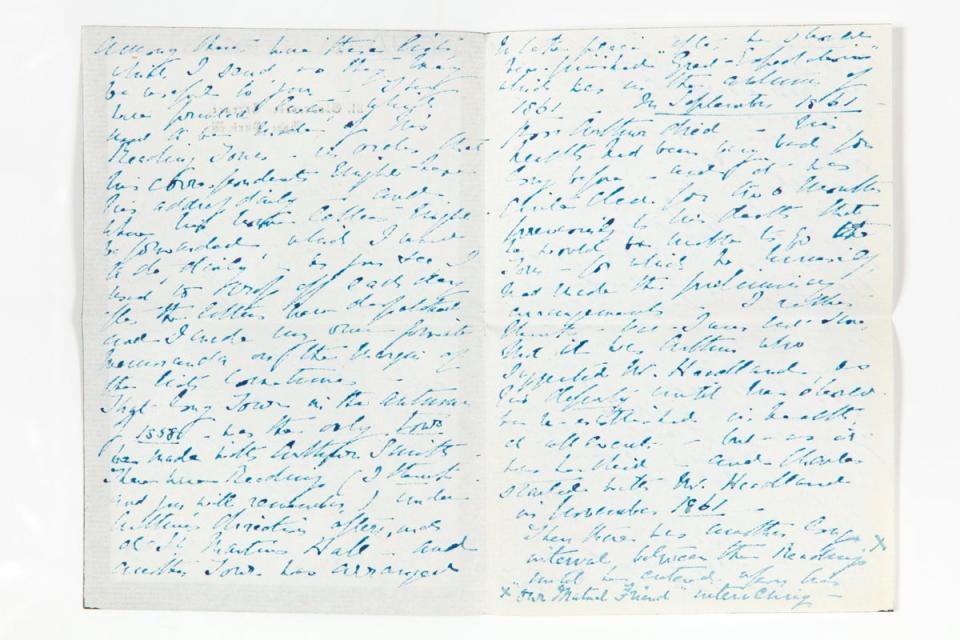 Among them were these lists
which I send as they may
be useful to you - I
have
had to be made of his
Reading Tours - in order that
his correspondents might have
his address daily - and
when his letters might
be forwarded which I used
to do daily - as you see I
used to off each day
after the letters were despatched
and I made my own private
memoranda on the margin of
the lists sometimes -
That long Tour in the autumn
of 1858 - was the only tour
he made with Arthur Smith -
There were Readings (I think
and you will remember) under
Arthur's direction afterwards
at St Martins Hall - and
another Tour was arranged
to take place "after he should
have finished Great Expectations"
which was in the autumn of
1861 - In September 1861 -
Poor Arthur died - His
health had been very bad for
long before - and it was
for two months
previously to his death that
he would be unable to go
Tour - for which he himself
had made the preliminary
arrangements I rather
think - but I am not sure
that it was Arthur who
suggested Mr. Headland as
his deputy until he should
be in health
at all events - but - as it
was he died - and Charles
started with Mr. Headland
in November 1861 -
Then there was another long x
interval between the Readings
until he entered upon his
x "Our Mutual Friend" intervening -